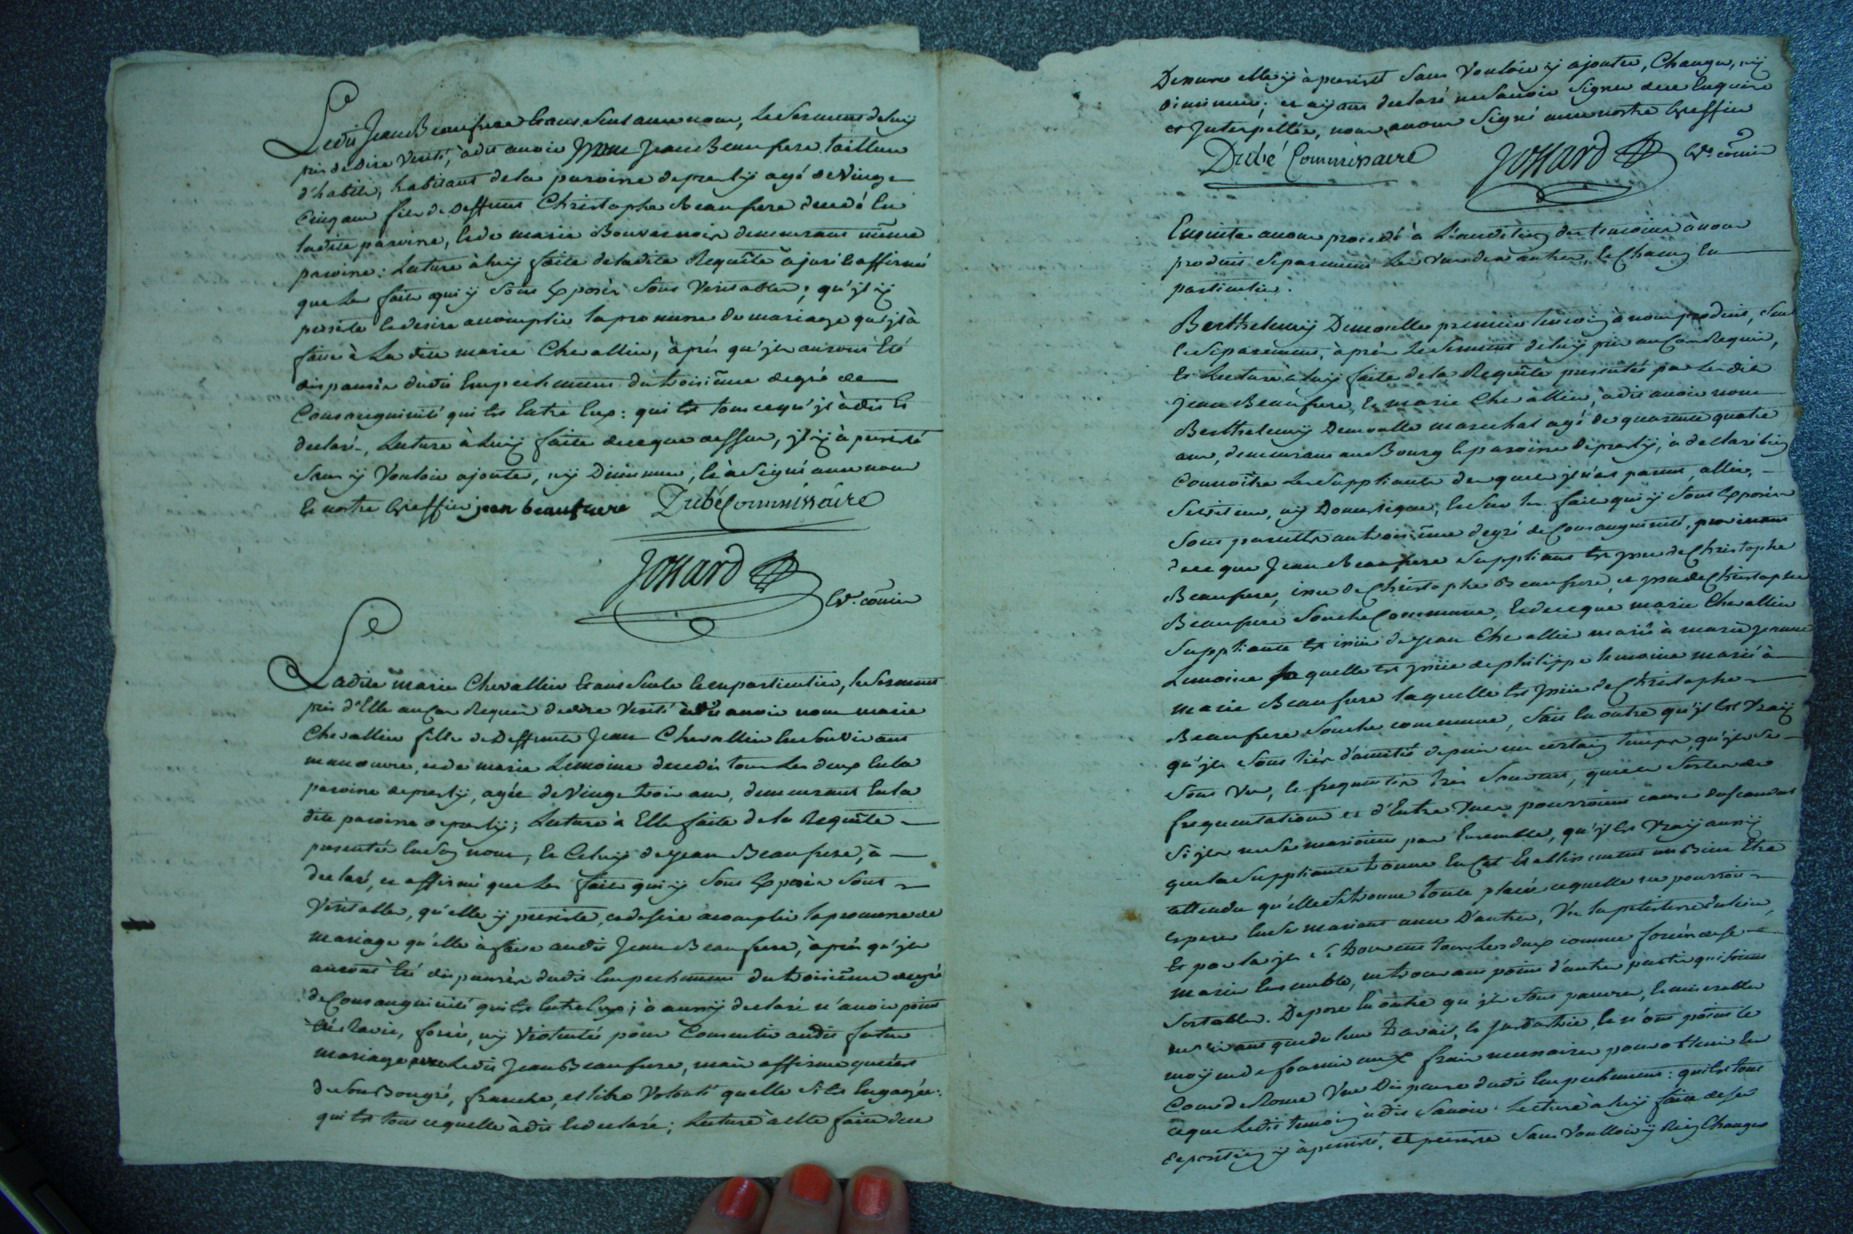 Ledit Jean Beaufrere Etant Seul avec nous, le Serment de luy
pris de dire Verité, à dit avoir nom Jean Beaufrere tailleur
d'habits, habitant de la paroisse de presly agé de Vingt
Cinq ans fils de Deffunt Christophe Beaufrere decedé En
ladite paroisse, Et de marie Bouvernois demeurant même
paroisse: Lecture à luy faite de ladite Requête à juré Et affirmé
que Les faits qui y Sont Exposés Sont Veritables; qu'jl y
persiste Et desire accomplir la promesse de mariage qu'jl à
faite à La dite marie Chevallier, àprés qu'jls auront Eté
dispensés dudit Empechement du troisiême degré de
Consanguinité qui Est Entre Eux: qui Est tout ce qu'jl à dit Et
declaré, Lecture à luy faite de ce que dessus, jl y à persisté
Sans y Vouloir ajouter, ny Diminuer, Et à Signé avec nous
Et nostre Greffier jean beaufrere Dubé Commissaire
Jossard
Gr. comis
Ladite marie Chevallier Etant Seule Et en particulier, le Serment
pris d'Elle au Cas Requis de dire Verité à dit avoir nom marie
Chevallier fille de Deffunts Jean Chevallier En Son Vivant
manoeuvre, et de marie Lemoine decedés tous Les deux En la
paroisse de presly, agée de Vingt trois ans, demeurant En la
dite paroisse de presly; Lecture à Elle faite de la Requête
presentée En Son nom, Et Celuy de Jean Beaufrere, à
declaré, et affirmé que Les faits qui y Sont Exposés Sont
Veritables, qu'elle y persiste, et desire acomplir la promesse de
mariage qu'elle à faite audit Jean Beaufrere, àprés qu'jls
auront Eté dispensés dudit Empechement du troisiême degré
de Consanguinité qui Est Entre Eux; à aussy declaré n'avoir point
Eté Ravie, forcée, ny Violentée pour Consentir audit futur
mariage avec Ledit Jean Beaufrere, mais affirme que c'est
de Son Bon gré, franche, et libre Volonté quelle S'Est Engagée:
qui Est tout ce quelle à dit Et declaré; Lecture à elle faite de ce
Dessus elle y à persisté Sans Vouloir y ajouter, Changer, ny
diminuer; et ayant declaré ne Savoir Signer de ce Enquise
et Jnterpellée, nous avons Signé avec nostre Greffier
Dubé Commissaire Jossard Gr. comis
Ensuite avons procedé à L'audition des temoins à nous
produits Separement Les Uns des autres, Et Chacun En
particulier.
Berthelemy Demoulle premier temoin à nous produit, Seul
Et Separement, àprés le Serment de luy pris au Cas Requis,
Et Lecture à luy faite de la Requête presentée par Les dits
Jean Beaufrere, Et marie Chevallier, à dit avoir nom
Berthelemy Demoulle marechal agé de quarante quatre
ans, demeurant au Bourg Et paroisse de presly, à declaré bien
Connoître Les Suppliants desquels jl n'est parent, allié,
Serviteur, ny Domestique; Et Sur les faits qui y Sont Exposés
Sont parents au troisiême degré de Consanguinité, provenant
de ce que Jean Beaufrere Suppliant Est jssu de Christophe
Beaufrere, issu de Christophe Beaufrere, et jssu de Christophe
Beaufrere Souche Commune, Et de ce que marie Chevallier
Suppliante Est issüe de Jean Chevallier marié à marie jeanne
Lemoine Laquelle Est jssüe de philippe lemoine marié à
marie Beaufrere laquelle Est jssüe de Christophe
Beaufrere Souche commune, Sait En outre qu'jl Est Vray
qu'jls Sont liés d'amitié depuis un certain temps, qu'jls Se
Sont Vu, Et frequentés très Souvent, que ces Sortes de
frequentations et d'Entre Vues pourroient causer du Scandale
Si jls ne Se marioient pas Ensemble, qu'jl Est Vray aussy
que la Suppliante trouve En Cet Etablissement un Bien Etre
attendu qu'elle Se trouve toute placée ce quelle ne pourroit
esperer En Se mariant avec D'autres, Vu la petitesse du lieu,
Et par la jls Se trouvent tous Les deux comme forcés de Se
marier Ensemble, ne trouvant point d'autre partis qui Soient
Sortable. Depose En outre qu'jls Sont pauvres, Et miserables
ne vivant que de leur travail, Et Jndustrie, Et n'ont point le
moyen de fournir aux frais necessaires pour obtenir En
Cour de Rome Une Dispense dudit Empechement: qui Est tout
ce que Ledit temoin à dit Savoir. Lecture à luy faite de Sa
Deposition y à persisté, et persiste Sans Voulloir y Rien Changer